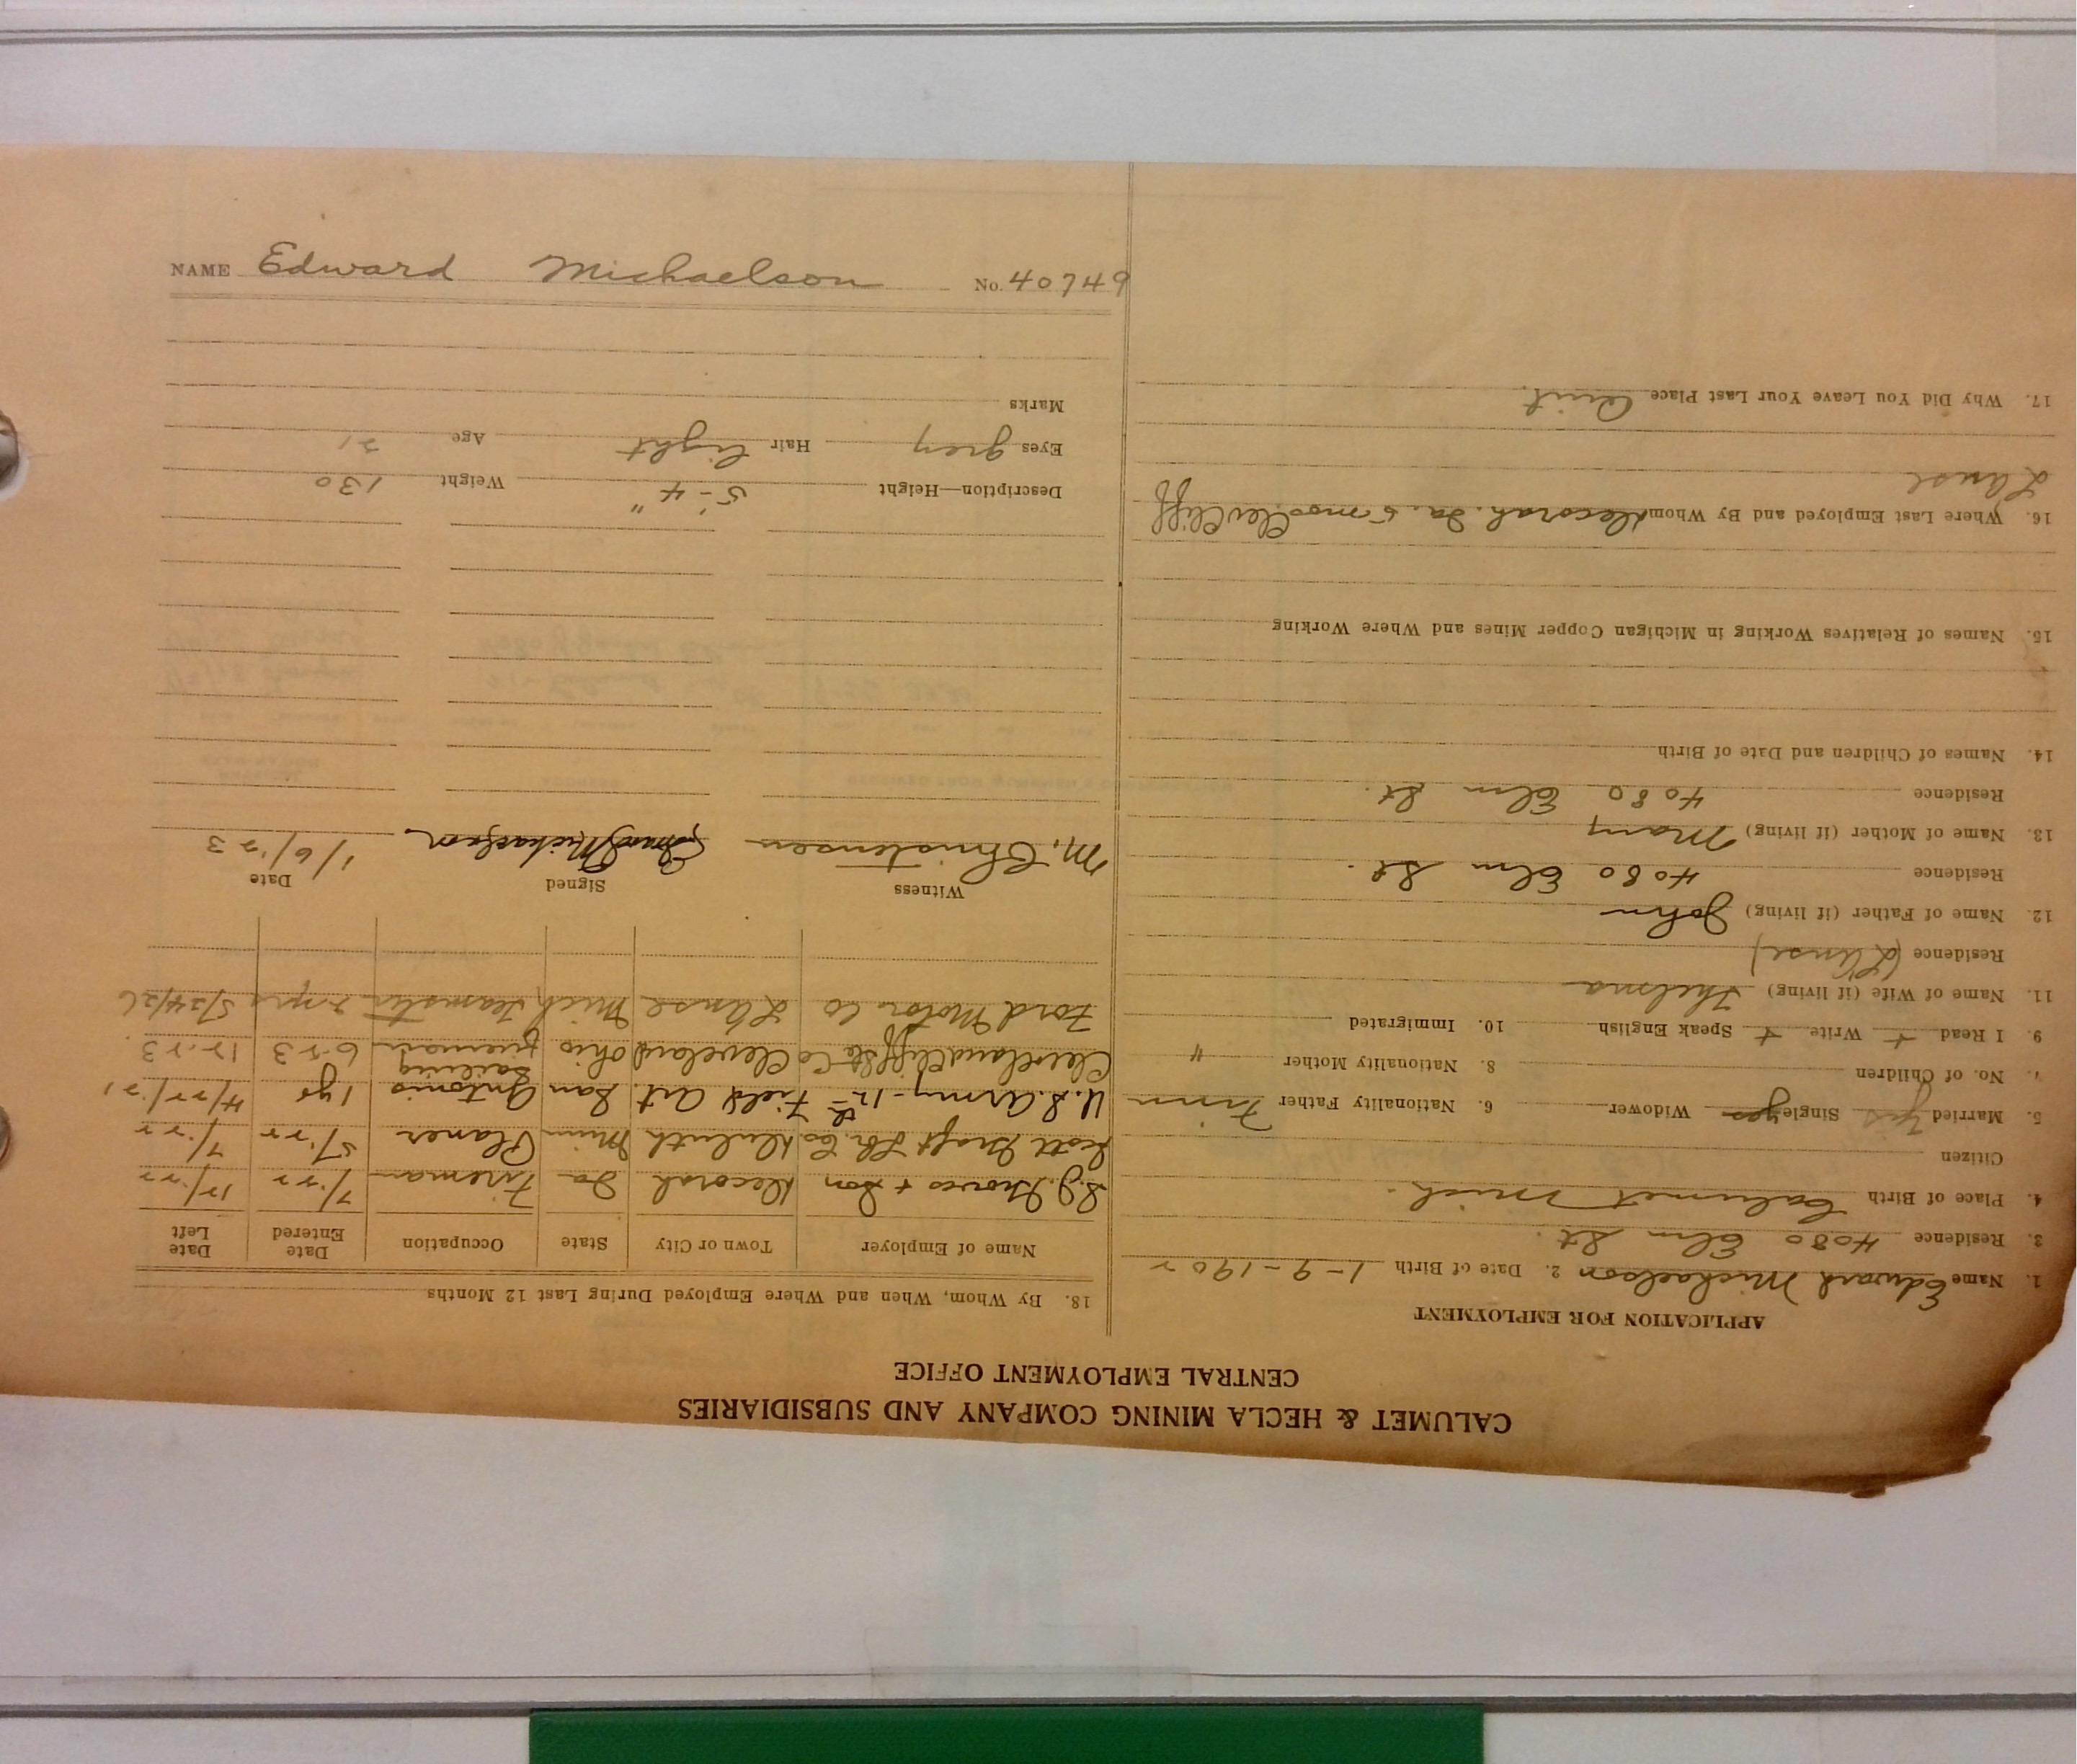 CALUMET & HECLA MINING COMPANY AND SUBSIDIARIES
CENTRAL EMPLOYMENT OFFICE
APPLICATION FOR EMPLOYMENT
1. Name Edward Michaelson 2. Date of Birth 1-9-1902
3. Residence 4080 Elm St.
4. Place of Birth Calumet Mich.
Citizen
5. Married Yes Single yes Widower 6. Nationality Father Finn
7. No. of Children 8. Nationality Mother "
9. I Read + Write + Speak English 10. Immigrated
11. Name of Wife (if living) Thelma
Residence (L'Anse)
12. Name of Father (if living) John
Residence 4080 Elm St.
13. Name of Mother (if living) Mary
Residence 4080 Elm St.
14. Names of Children and Date of Birth
15. Names of Relatives Working in Michigan Copper Mines and Where Working
16. Where Last Employed and By Whom Decorah. Ia. 5 mos Clev Cliff
L'Anse
17. Why Did You Leave Your Last Place Quit.
18. By Whom, When and Where Employed During Last 12 Months
Name of Employer Town or City State Occupation Date Entered Date Left
S.J. Groves + Son Decorah Ia Fireman 7/22 12/22
Scott Graft Lbr. Co Duluth Minn Planer 5/22 7/22
U.S. Army-12th Field Art. San Antonio 1 yr 4/22/21
Cleveland Cliffs Co Cleveland Ohio sailing fireman 6-23 12-23
Ford Motor Co L'Anse Mich teamster 2 yrs 5/24/26
Witness Signed Date
M. Christensen Edward Michaelson 1/6/23
Description—Height 5'-4" Weight 130
Eyes grey Hair light Age 21
Marks
NAME Edward Michaelson No. 40749